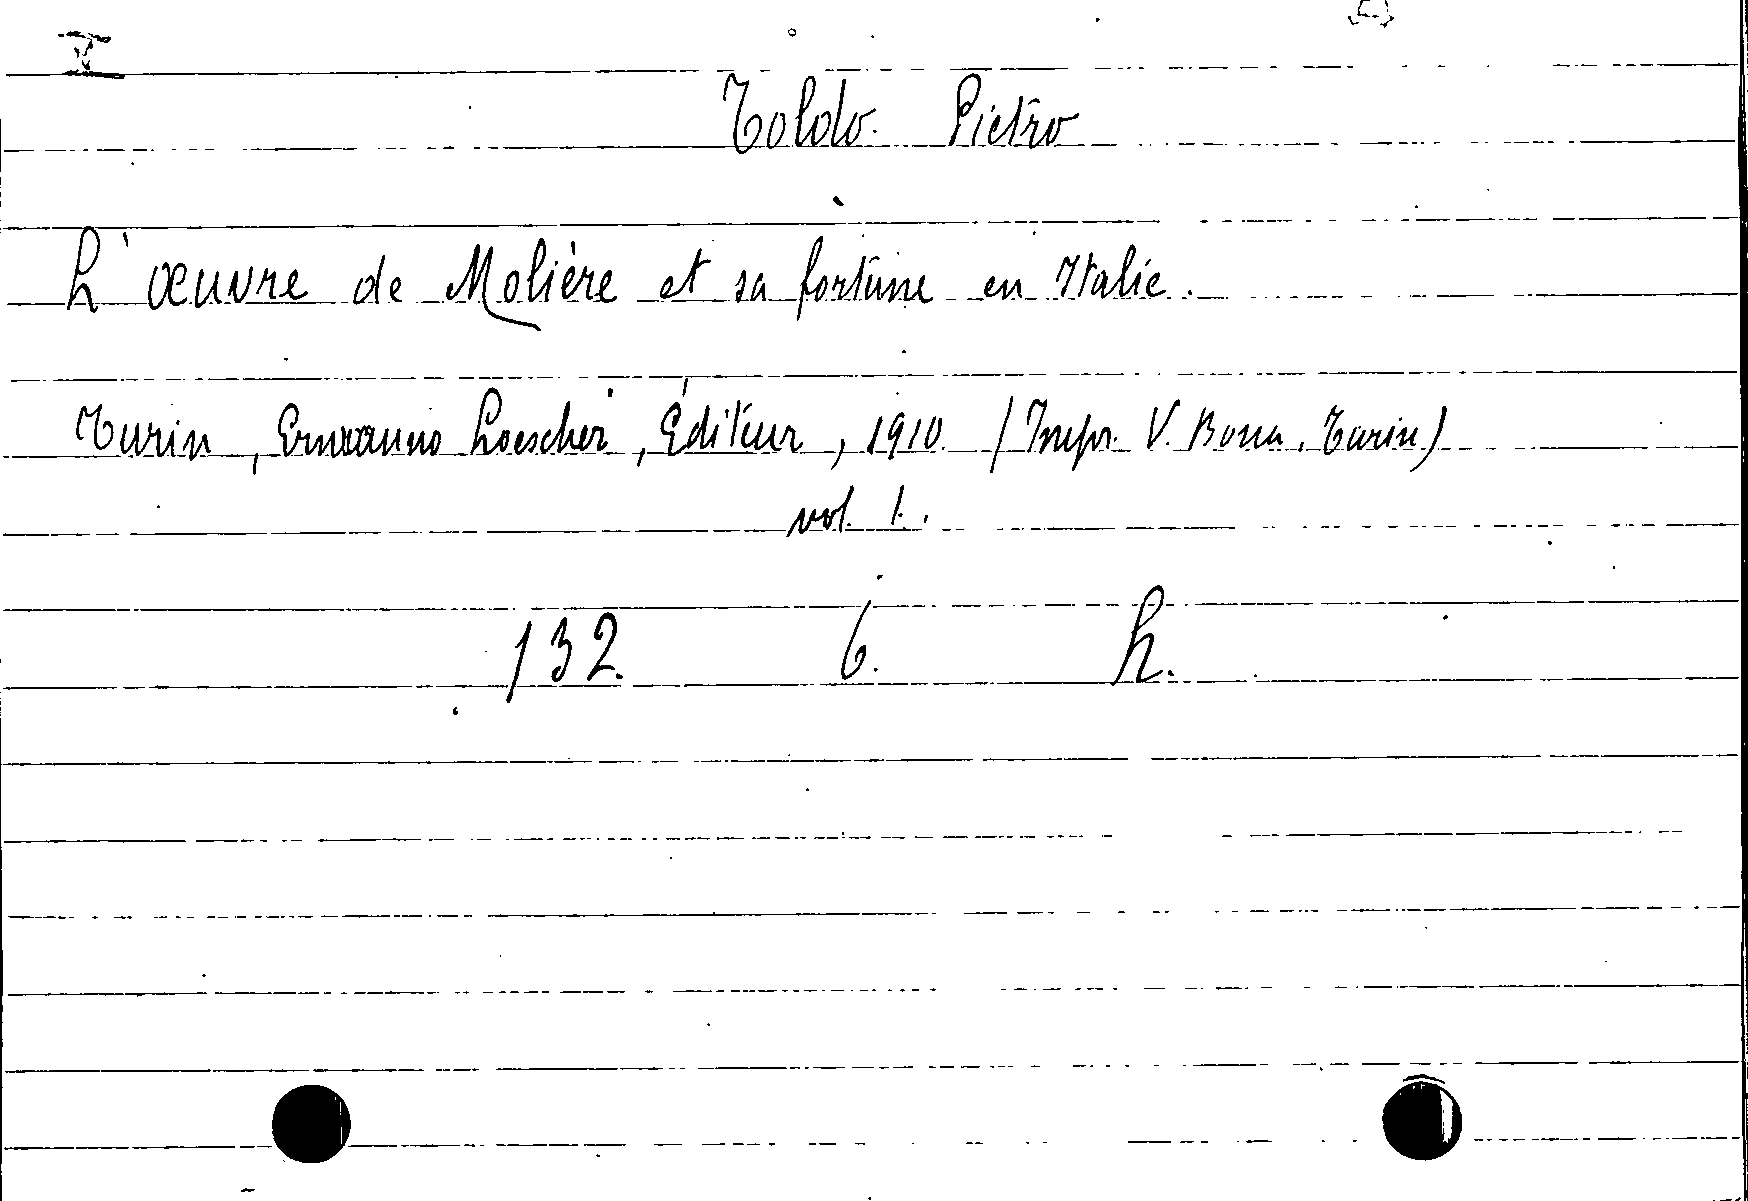 V
Toldo. Pietro
L'œuvre de Molière et sa fortune en Italie.
Turin, Ermanno Loescher, Éditeur, 1910. (Impr. V. Bona. Turin)
vol. 1.
132. 6. h.